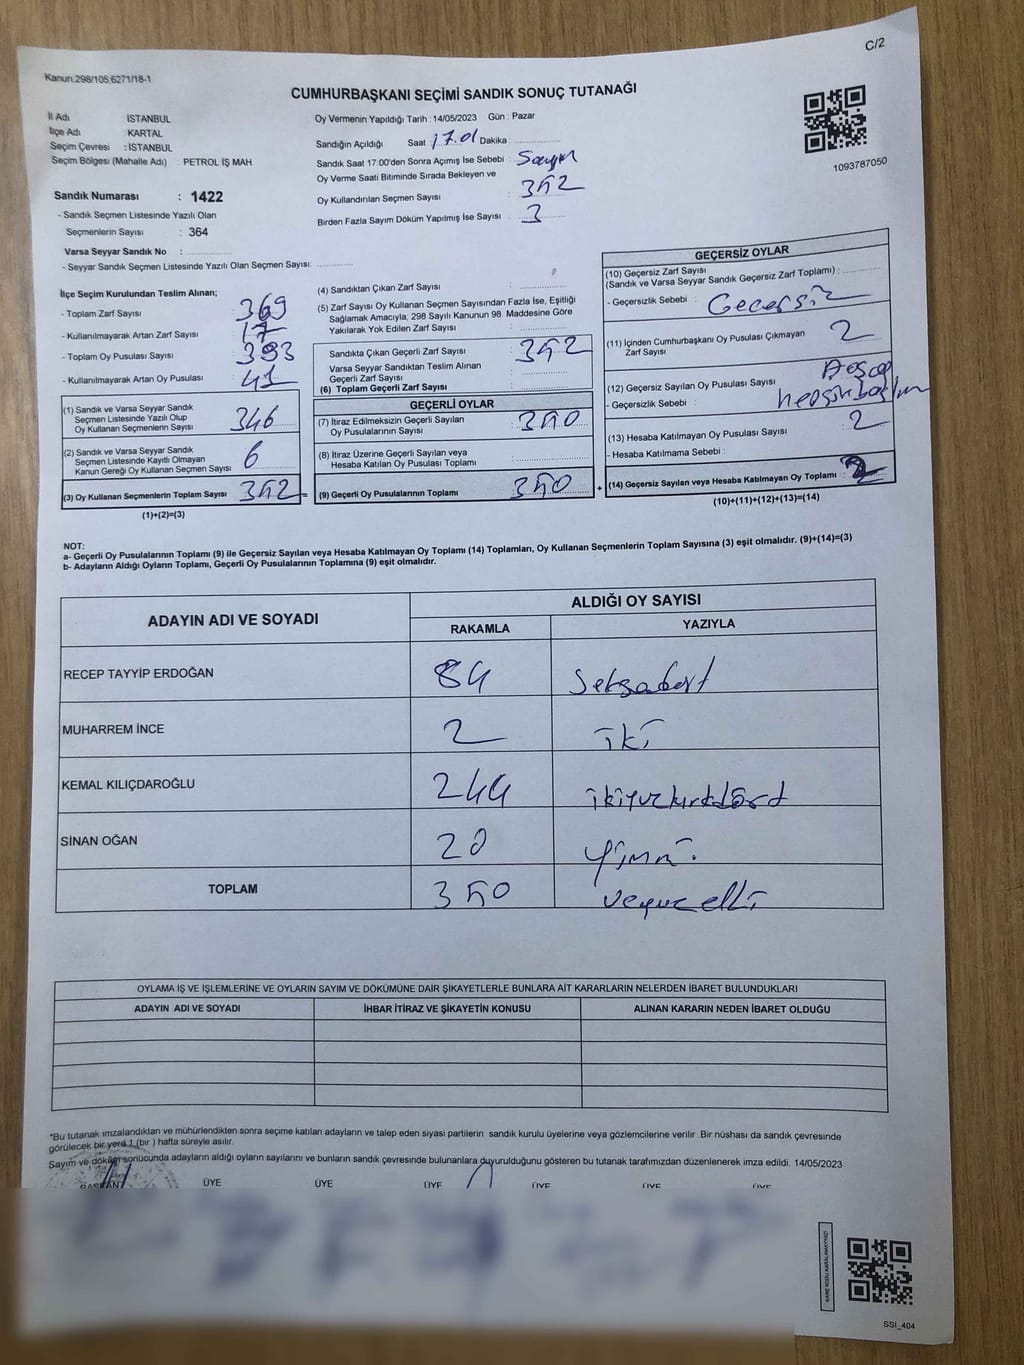 C/2
Kanun.298/105:6271/18-1
CUMHURBAŞKANI SEÇİMİ SANDIK SONUÇ TUTANAĞI
İl Adı : İSTANBUL
İlçe Adı : KARTAL
Seçim Çevresi : İSTANBUL
Seçim Bölgesi (Mahalle Adı) : PETROL İŞ MAH
Sandık Numarası : 1422
- Sandık Seçmen Listesinde Yazılı Olan
Seçmenlerin Sayısı : 364
Varsa Seyyar Sandık No :
- Seyyar Sandık Seçmen Listesinde Yazılı Olan Seçmen Sayısı:
Oy Vermenin Yapıldığı Tarih : 14/05/2023 Gün : Pazar
Sandığın Açıldığı Saat 17.01 Dakika :
Sandık Saat 17:00'den Sonra Açımış İse Sebebi : Sayım
Oy Verme Saati Bitiminde Sırada Bekleyen ve
Oy Kullandırılan Seçmen Sayısı : 352
Birden Fazla Sayım Döküm Yapılmış İse Sayısı : 3
1093787050
İlçe Seçim Kurulundan Teslim Alınan;
- Toplam Zarf Sayısı : 369
- Kullanılmayarak Artan Zarf Sayısı : 17
- Toplam Oy Pusulası Sayısı : 393
- Kullanılmayarak Artan Oy Pusulası : 41
(1) Sandık ve Varsa Seyyar Sandık
Seçmen Listesinde Yazılı Olup
Oy Kullanan Seçmenlerin Sayısı 346
(2) Sandık ve Varsa Seyyar Sandık
Seçmen Listesinde Kayıtlı Olmayan
Kanun Gereği Oy Kullanan Seçmen Sayısı 6
(3) Oy Kullanan Seçmenlerin Toplam Sayısı 352 =
(1)+(2)=(3)
(4) Sandıktan Çıkan Zarf Sayısı :
(5) Zarf Sayısı Oy Kullanan Seçmen Sayısından Fazla İse, Eşitliği
Sağlamak Amacıyla, 298 Sayılı Kanunun 98. Maddesine Göre
Yakılarak Yok Edilen Zarf Sayısı :
Sandıkta Çıkan Geçerli Zarf Sayısı : 352
Varsa Seyyar Sandıktan Teslim Alınan
Geçerli Zarf Sayısı :
(6) Toplam Geçerli Zarf Sayısı :
GEÇERLİ OYLAR
(7) İtiraz Edilmeksizin Geçerli Sayılan
Oy Pusulalarının Sayısı : 350
(8) İtiraz Üzerine Geçerli Sayılan veya
Hesaba Katılan Oy Pusulası Toplamı :
(9) Geçerli Oy Pusulalarının Toplamı : 350 +
GEÇERSİZ OYLAR
(10) Geçersiz Zarf Sayısı
(Sandık ve Varsa Seyyar Sandık Geçersiz Zarf Toplamı) :
- Geçersizlik Sebebi : Geçersiz
(11) İçinden Cumhurbaşkanı Oy Pusulası Çıkmayan
Zarf Sayısı : 2
(12) Geçersiz Sayılan Oy Pusulası Sayısı :
- Geçersizlik Sebebi :
(13) Hesaba Katılmayan Oy Pusulası Sayısı : 2
- Hesaba Katılmama Sebebi :
(14) Geçersiz Sayılan veya Hesaba Katılmayan Oy Toplamı : 2
(10)+(11)+(12)+(13)=(14)
NOT:
a- Geçerli Oy Pusulalarının Toplamı (9) ile Geçersiz Sayılan veya Hesaba Katılmayan Oy Toplamı (14) Toplamları, Oy Kullanan Seçmenlerin Toplam Sayısına (3) eşit olmalıdır. (9)+(14)=(3)
b- Adayların Aldığı Oyların Toplamı, Geçerli Oy Pusulalarının Toplamına (9) eşit olmalıdır.
ADAYIN ADI VE SOYADI
ALDIĞI OY SAYISI
RAKAMLA YAZIYLA
RECEP TAYYİP ERDOĞAN 84 Seksadört
MUHARREM İNCE 2 iki
KEMAL KILIÇDAROĞLU 244 ikiyuzkırkdört
SİNAN OĞAN 20 Yirmi.
TOPLAM 350 ucyuz elli
OYLAMA İŞ VE İŞLEMLERİNE VE OYLARIN SAYIM VE DÖKÜMÜNE DAİR ŞİKAYETLERLE BUNLARA AİT KARARLARIN NELERDEN İBARET BULUNDUKLARI
ADAYIN ADI VE SOYADI İHBAR İTİRAZ VE ŞİKAYETİN KONUSU ALINAN KARARIN NEDEN İBARET OLDUĞU
*Bu tutanak imzalandıktan ve mühürlendikten sonra seçime katılan adayların ve talep eden siyasi partilerin sandık kurulu üyelerine veya gözlemcilerine verilir .Bir nüshası da sandık çevresinde
görülecek bir yere 1 (bir ) hafta süreyle asılır.
Sayım ve döküm sonucunda adayların aldığı oyların sayılarını ve bunların sandık çevresinde bulunanlara duyurulduğunu gösteren bu tutanak tarafımızdan düzenlenerek imza edildi. 14/05/2023
BAŞKAN ÜYE ÜYE ÜYE ÜYE ÜYE ÜYE
SSI_404